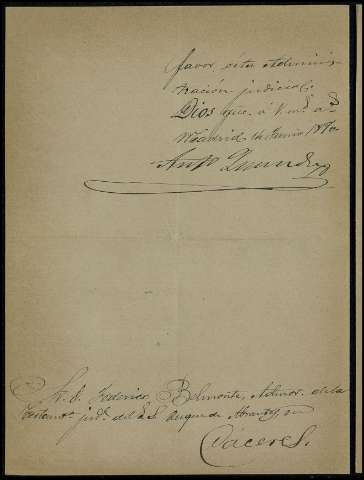 favor, esta Adminis-
tración judicial.
Dios gue. á V. ms. as.
Madrid Junio 1870
Anto
Sr. D. Federico Belmonte, Admor. de la
Testamta. judl. del E. S. duque de Abrantes en
Cáceres.